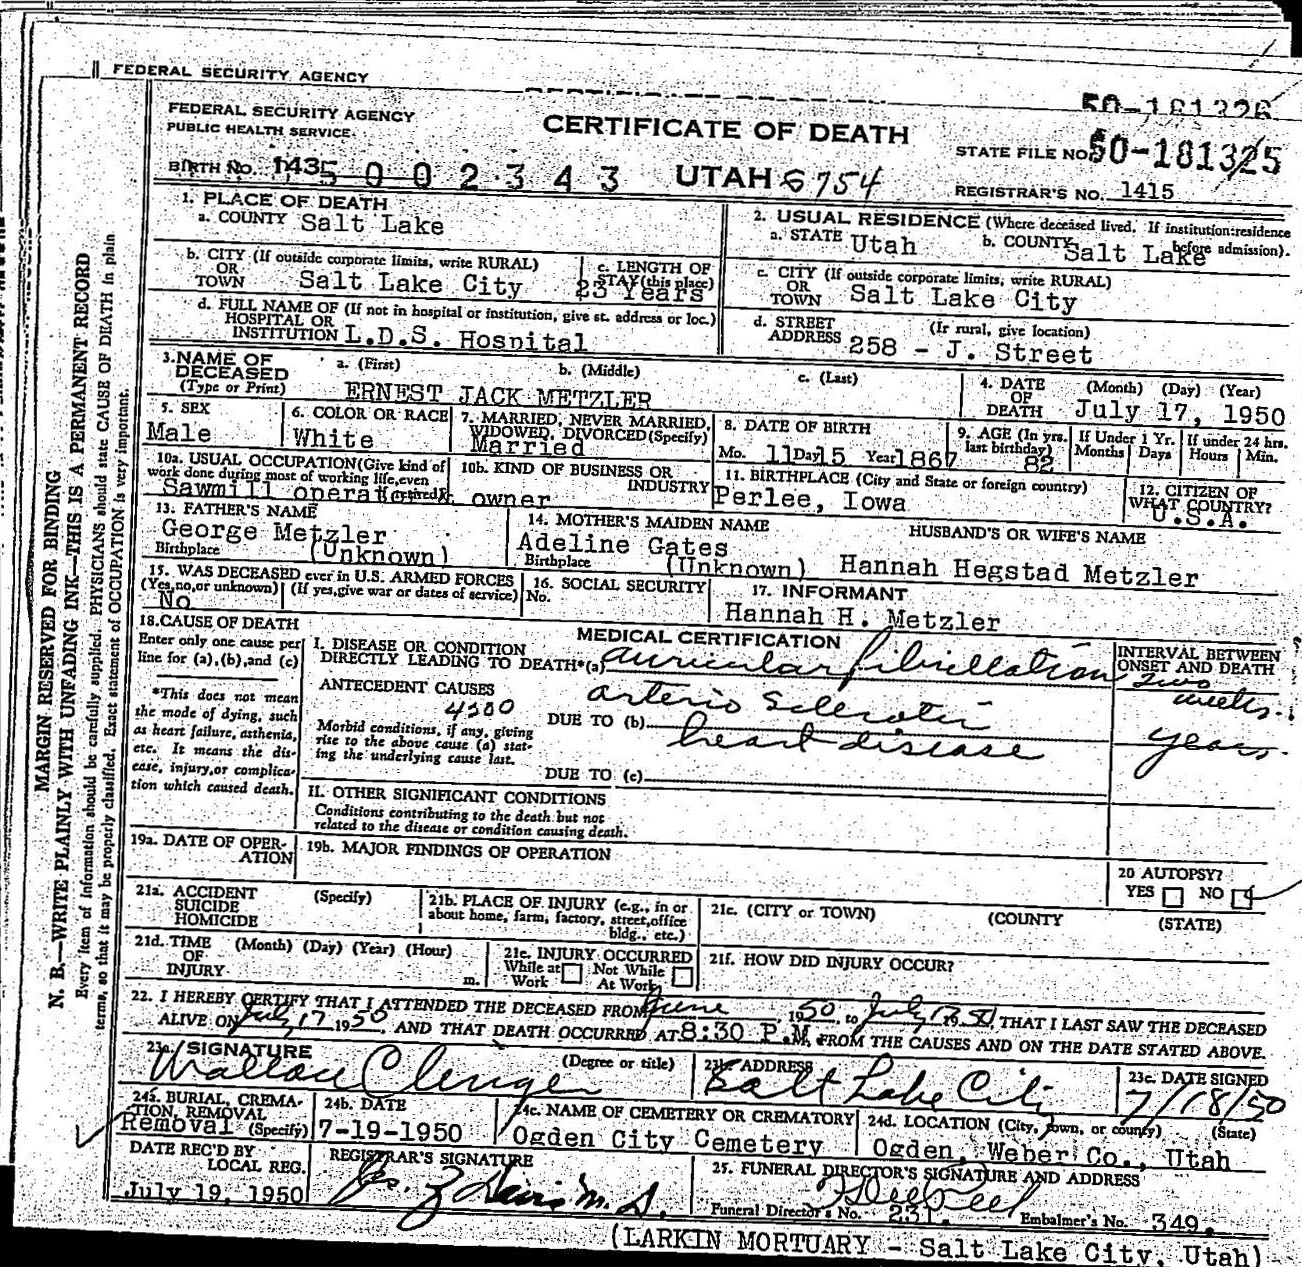 FEDERAL SECURITY AGENCY
50-181326
FEDERAL SECURITY AGENCY
PUBLIC HEALTH SERVICE
CERTIFICATE OF DEATH
STATE FILE NO. 50-181325
BIRTH No. 1435 002343 UTAH 6754
REGISTRAR'S NO. 1415
1. PLACE OF DEATH
a. COUNTY Salt Lake
2. USUAL RESIDENCE (Where deceased lived. If institution: residence before admission).
a. STATE Utah b. COUNTY Salt Lake
b. CITY (If outside corporate limits, write RURAL) OR TOWN Salt Lake City
c. LENGTH OF STAY (this place) 23 Years
c. CITY (If outside corporate limits, write RURAL) OR TOWN Salt Lake City
d. FULL NAME OF (If not in hospital or institution, give st. address or loc.) HOSPITAL OR INSTITUTION L.D.S. Hospital
d. STREET ADDRESS (If rural, give location) 258 - J. Street
3. NAME OF DECEASED (Type or Print)
a. (First) b. (Middle) c. (Last)
ERNEST JACK METZLER
4. DATE OF DEATH (Month) (Day) (Year) July 17, 1950
5. SEX Male
6. COLOR OR RACE White
7. MARRIED, NEVER MARRIED, WIDOWED, DIVORCED (Specify) Married
8. DATE OF BIRTH Mo. 11 Day 15 Year 1867
9. AGE (In yrs. last birthday) 82
If Under 1 Yr. Months Days
If under 24 hrs. Hours Min.
10a. USUAL OCCUPATION (Give kind of work done during most of working life, even if retired) Sawmill operator & owner
10b. KIND OF BUSINESS OR INDUSTRY
11. BIRTHPLACE (City and State or foreign country) Perlee, Iowa
12. CITIZEN OF WHAT COUNTRY? U.S.A.
13. FATHER'S NAME George Metzler
Birthplace (Unknown)
14. MOTHER'S MAIDEN NAME Adeline Gates
Birthplace (Unknown)
HUSBAND'S OR WIFE'S NAME Hannah Hegstad Metzler
15. WAS DECEASED ever in U.S. ARMED FORCES
(Yes, no, or unknown) (If yes, give war or dates of service) No
16. SOCIAL SECURITY No.
17. INFORMANT Hannah H. Metzler
18. CAUSE OF DEATH
Enter only one cause per line for (a), (b), and (c)
*This does not mean the mode of dying, such as heart failure, asthenia, etc. It means the disease, injury, or complication which caused death.
MEDICAL CERTIFICATION
INTERVAL BETWEEN ONSET AND DEATH
I. DISEASE OR CONDITION DIRECTLY LEADING TO DEATH*(a) auricular fibrillation two weeks.
ANTECEDENT CAUSES
4200
Morbid conditions, if any, giving rise to the above cause (a) stating the underlying cause last.
DUE TO (b) arterio sclerotic heart disease years.
DUE TO (c)
II. OTHER SIGNIFICANT CONDITIONS
Conditions contributing to the death but not related to the disease or condition causing death.
19a. DATE OF OPERATION
19b. MAJOR FINDINGS OF OPERATION
20 AUTOPSY?
YES NO
21a. ACCIDENT SUICIDE HOMICIDE (Specify)
21b. PLACE OF INJURY (e.g., in or about home, farm, factory, street, office bldg., etc.)
21c. (CITY or TOWN) (COUNTY (STATE)
21d. TIME OF INJURY (Month) (Day) (Year) (Hour) m.
21e. INJURY OCCURRED While at Work Not While At Work
21f. HOW DID INJURY OCCUR?
22. I HEREBY CERTIFY THAT I ATTENDED THE DECEASED FROM June 1950, to July 17 1950, THAT I LAST SAW THE DECEASED
ALIVE ON July 17 1950, AND THAT DEATH OCCURRED AT 8:30 P.M, FROM THE CAUSES AND ON THE DATE STATED ABOVE.
23a. SIGNATURE (Degree or title)
23b. ADDRESS Salt Lake City
23c. DATE SIGNED 7/18/50
24a. BURIAL, CREMATION, REMOVAL (Specify) Removal
24b. DATE 7-19-1950
24c. NAME OF CEMETERY OR CREMATORY Ogden City Cemetery
24d. LOCATION (City, town, or county) (State) Ogden, Weber Co., Utah
DATE REC'D BY LOCAL REG. July 19, 1950
REGISTRAR'S SIGNATURE
25. FUNERAL DIRECTOR'S SIGNATURE AND ADDRESS
Funeral Director's No. 231. Embalmer's No. 349.
(LARKIN MORTUARY - Salt Lake City, Utah)
MARGIN RESERVED FOR BINDING
N. B.—WRITE PLAINLY WITH UNFADING INK—THIS IS A PERMANENT RECORD
Every item of information should be carefully supplied. PHYSICIANS should state CAUSE OF DEATH in plain
terms, so that it may be properly classified. Exact statement of OCCUPATION is very important.